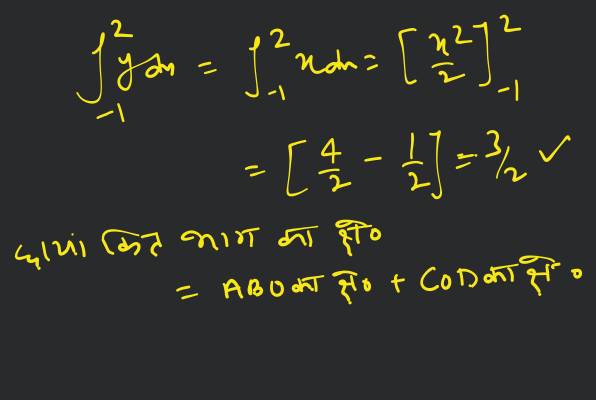 ∫₋₁² y dx = ∫₋₁² x dx = [x²/2]₋₁²
= [4/2 - 1/2] = 3/2 ✓
छायांकित भाग का क्षे०
= ABO का क्षे० + COD का क्षे०